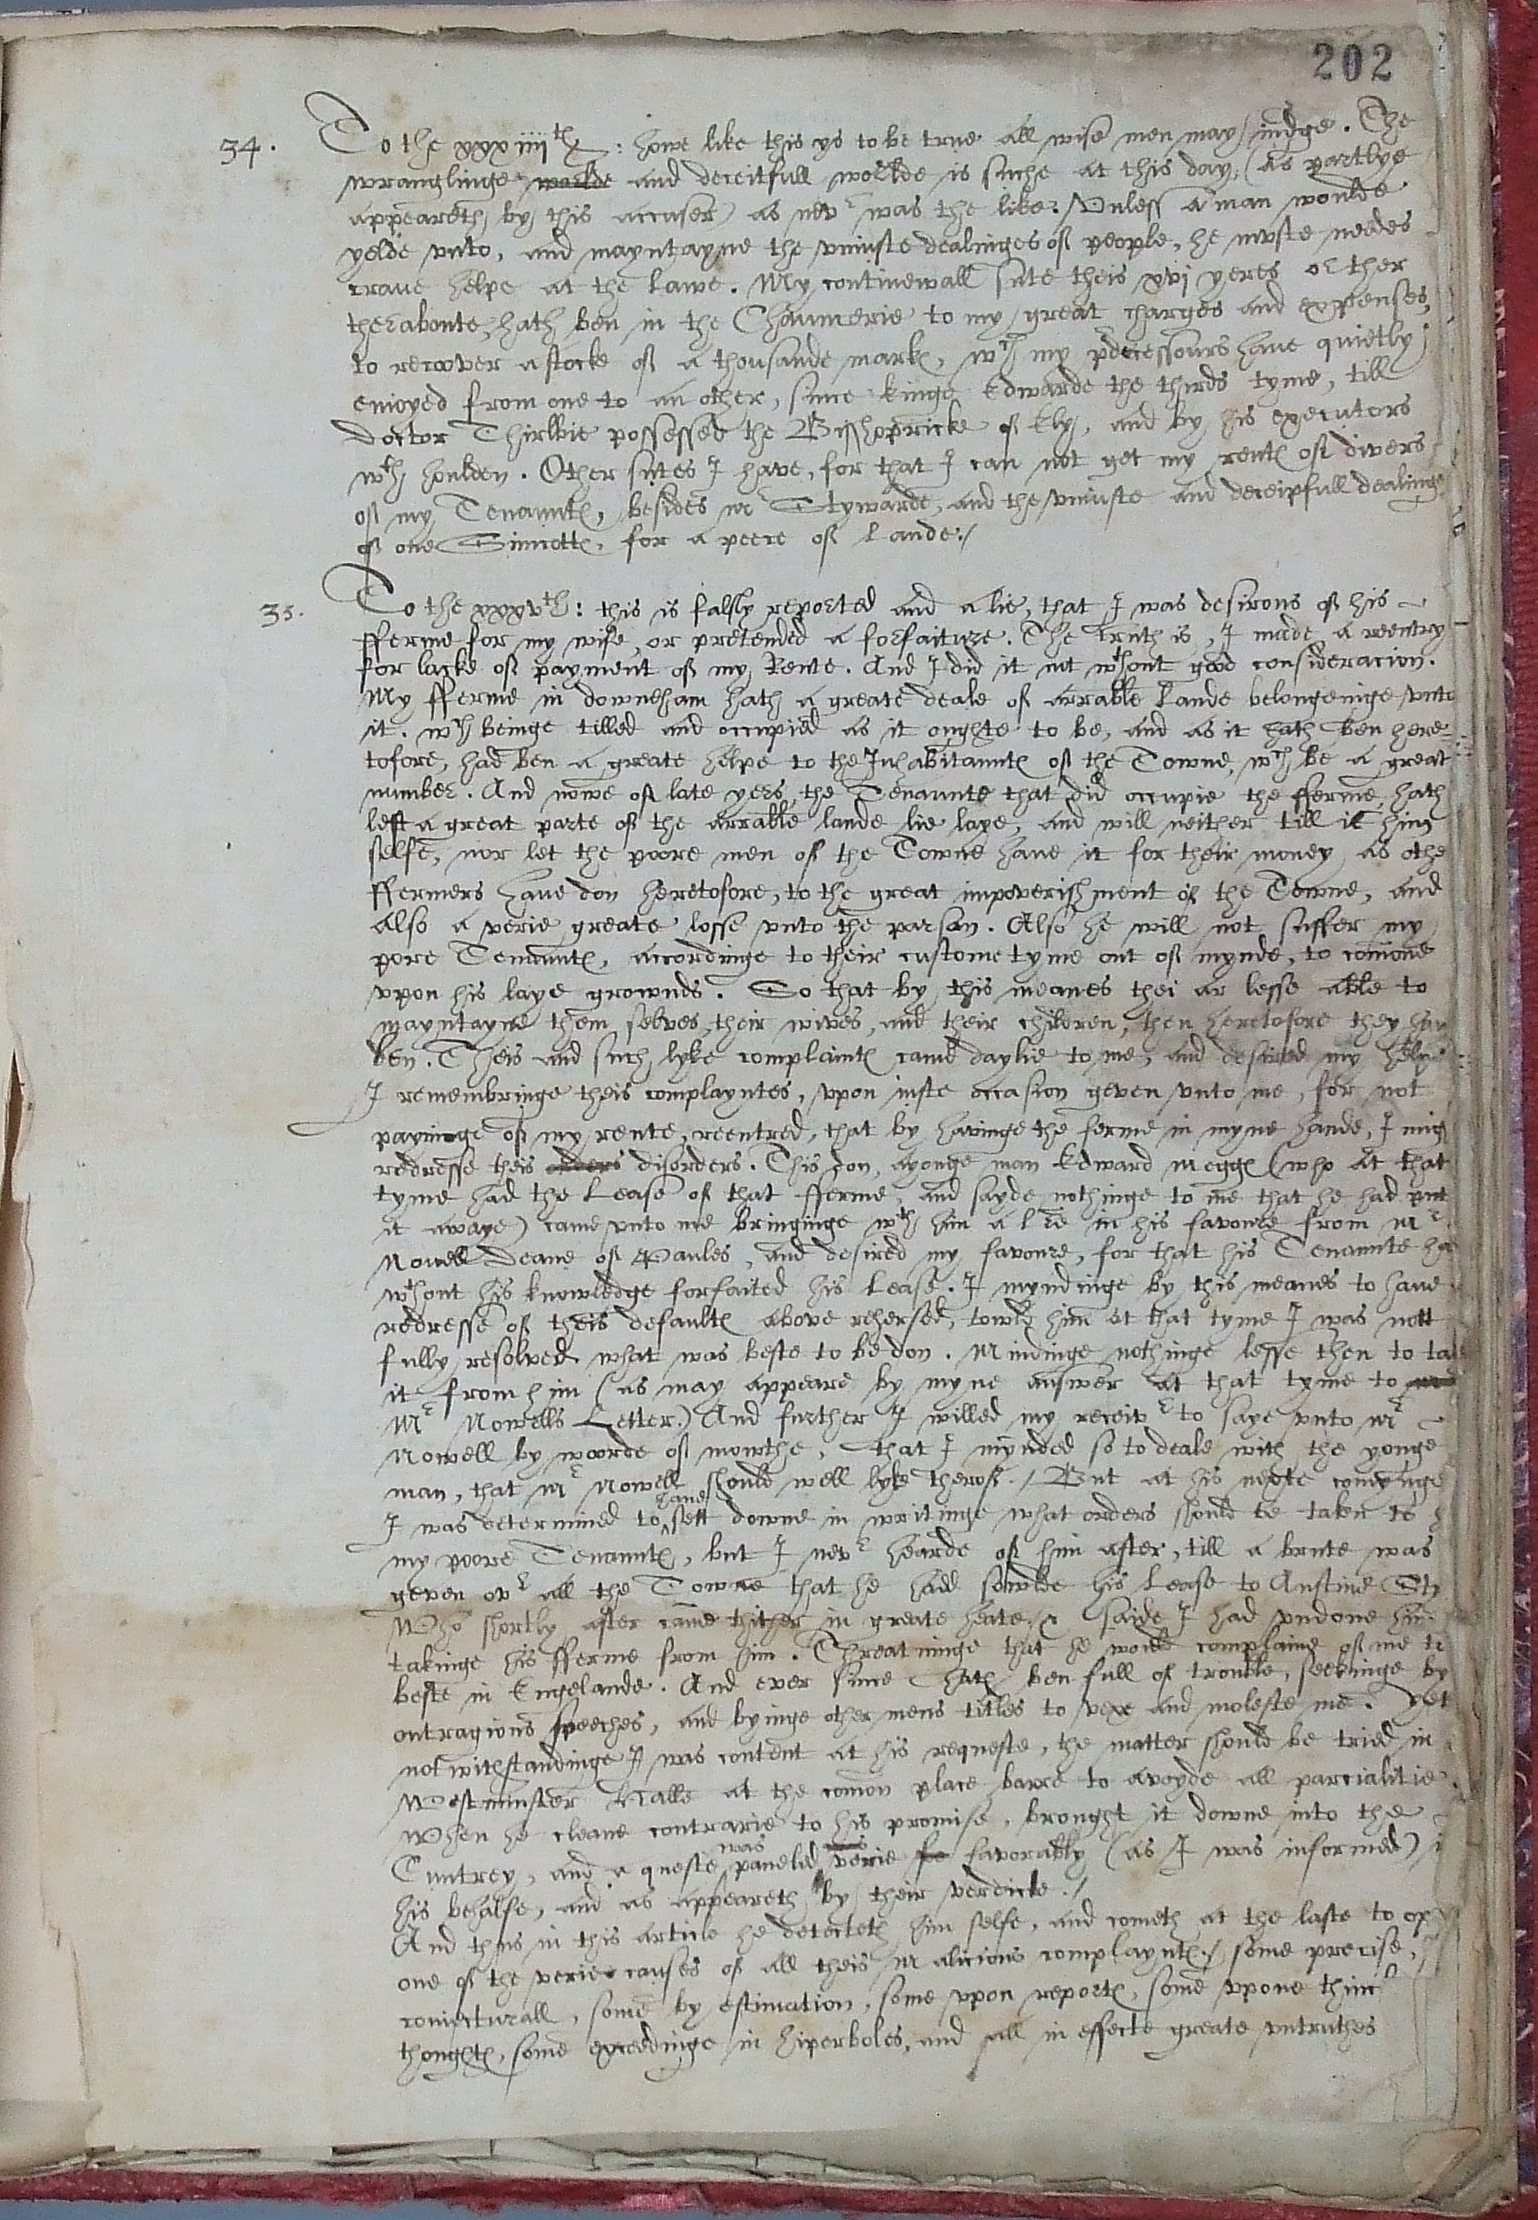 202
34. To the xxxiiijth: howe like this ys to be true all wise men may iudge. The
wranglinge worlde and deceitfull worlde is suche at this day, (as partlye
appeareth by this accuser) as nevr was the like. Vnless a man woulde
yelde vnto, and mayntayne the vniuste dealinges of people, he muste needes
crave helpe at the lawe. My continewall sute theis xvj yeres or ther
theraboute, hath ben in the Chauncerie to my great charges and expenses,
to recover a stocke of a thousande markes, wch my predecessours have quietly
enioyed from one to an other, since kinge Edwarde the thirds tyme, till
doctor Thirlbie possessed the Bisshopricke of Ely, and by his executors
wth houlden. Other sutes I have, for that I can not get my rentes of divers
of my Tenauntes, besides Mr Stywarde, and the vniuste and deceiptfull dealinge
of one for a peece of lande./
35. To the xxxvth: this is falsly reported and a lie, that I was desirous of his
fferme for my wife, or pretended a forfaiture. The truth is, I made a reentry
for lacke of payment of my Rente. And I did it not wthout good consideracion.
My fferme in downeham hath a greate deale of arrable lande belongeinge vnto
it. wch beinge tilled and occupied as it oughte to be, and as it hath ben here
tofore, had ben a greate helpe to the Inhabitauntes of the Towne, wch be a great
number. And nowe of late yers, the Tenaunte that did occupie the fferme, hath
left a great parte of the arrable lande lie laye, and will neither till it him
selfe, nor let the poore men of the Towne have it for their money, as othe
ffermers have don heretofore, to the great impoverishment of the Towne, and
also a verie greate losse vnto the parson. Also he will not suffer my
pore Tenauntes, accordinge to their custome tyme out of mynde, to comone
vpon his laye grownds. So that by this meanes thei ar lesse able to
mayntayne them selves, their wives, and their children, then heretofore they hav
ben. Theis and such lyke complaintes came daylie to me, and desired my helpe
I remembringe theis complayntes, vpon iuste occasion geven vnto me, for not
payinge of my rente, reentred, that by havinge the ferme in myne hande, I mig
redresse theis orders disorders. This don, a yonge man Edward Megges (who at that
tyme had the Lease of that fferme, and sayde nothinge to me that he had put
it awaye) came vnto me bringinge wth him a lre in his favoure from Mr
Nowell Deane of Paules, and desired my favoure, for that his Tenaunte ha
wthout his knowledge forfaited his Lease. I myndinge by this meanes to have
redresse of theis defaultes above rehersed, towld him at that tyme I was nott
fully resolved what was beste to be don. Mindinge nothinge lesse then to take
it from him (as may appeare by myne answer at that tyme to
Mr Nowells Letter.) And further I willed my receivr to saye vnto Mr
Nowell by woorde of mowthe, that I mynded so to deale with the yonge
man, that Mr Nowell should well lyke therof./ But at his nexte cominge
I was determined to have sett downe in writinge what orders should be taken to
my poore Tenauntes, but I nevr hearde of him after, till a brute was
geven ovr all the Towne that he hadd sowlde his Lease to Austine Sty
Who shortly after came thither in greate heate, & saide I had vndone him
takinge his fferme from him. Threatninge that he would complaine of me to
beste in Engelande. And ever since hath ben full of trouble, seekinge by
outragious speeches, and byinge other mens titles to vexe and moleste me. Yet
notwithstandinge I was content at his requeste, the matter should be tried in
Westminster Halle at the comon place barre to avoyde all parcialitie.
When he cleane contrarie to his promise, brought it downe into the
Cuntrey, and a queste was paneled verie fa favorably (as I was informed) i
his behalfe, and as appeareth by their verdicte./
And thus in this article he detecteth him selfe, and cometh at the laste to op
one of the verie causes of all theis malicious complayntes./ some precise,
coniecturall, some by estimation, some vpon reportes, some vpone thinc
thoughtes, some exceedinge in hiperboles, and all in effecte greate vntruthes